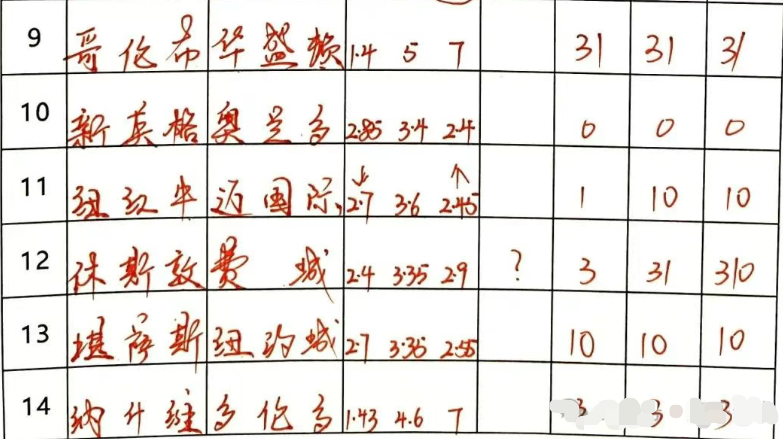 9 哥伦布 华盛顿 1.4 5 7 31 31 31
10 新英格 奥兰多 2.85 3.4 2.4 0 0 0
11 纽红牛 迈国际 2.7 3.6 2.45 1 10 10
12 休斯敦 费城 2.4 3.35 2.9 ? 3 31 310
13 堪萨斯 纽约城 2.7 3.35 2.55 10 10 10
14 纳什维 多伦多 1.43 4.6 7 3 3 3